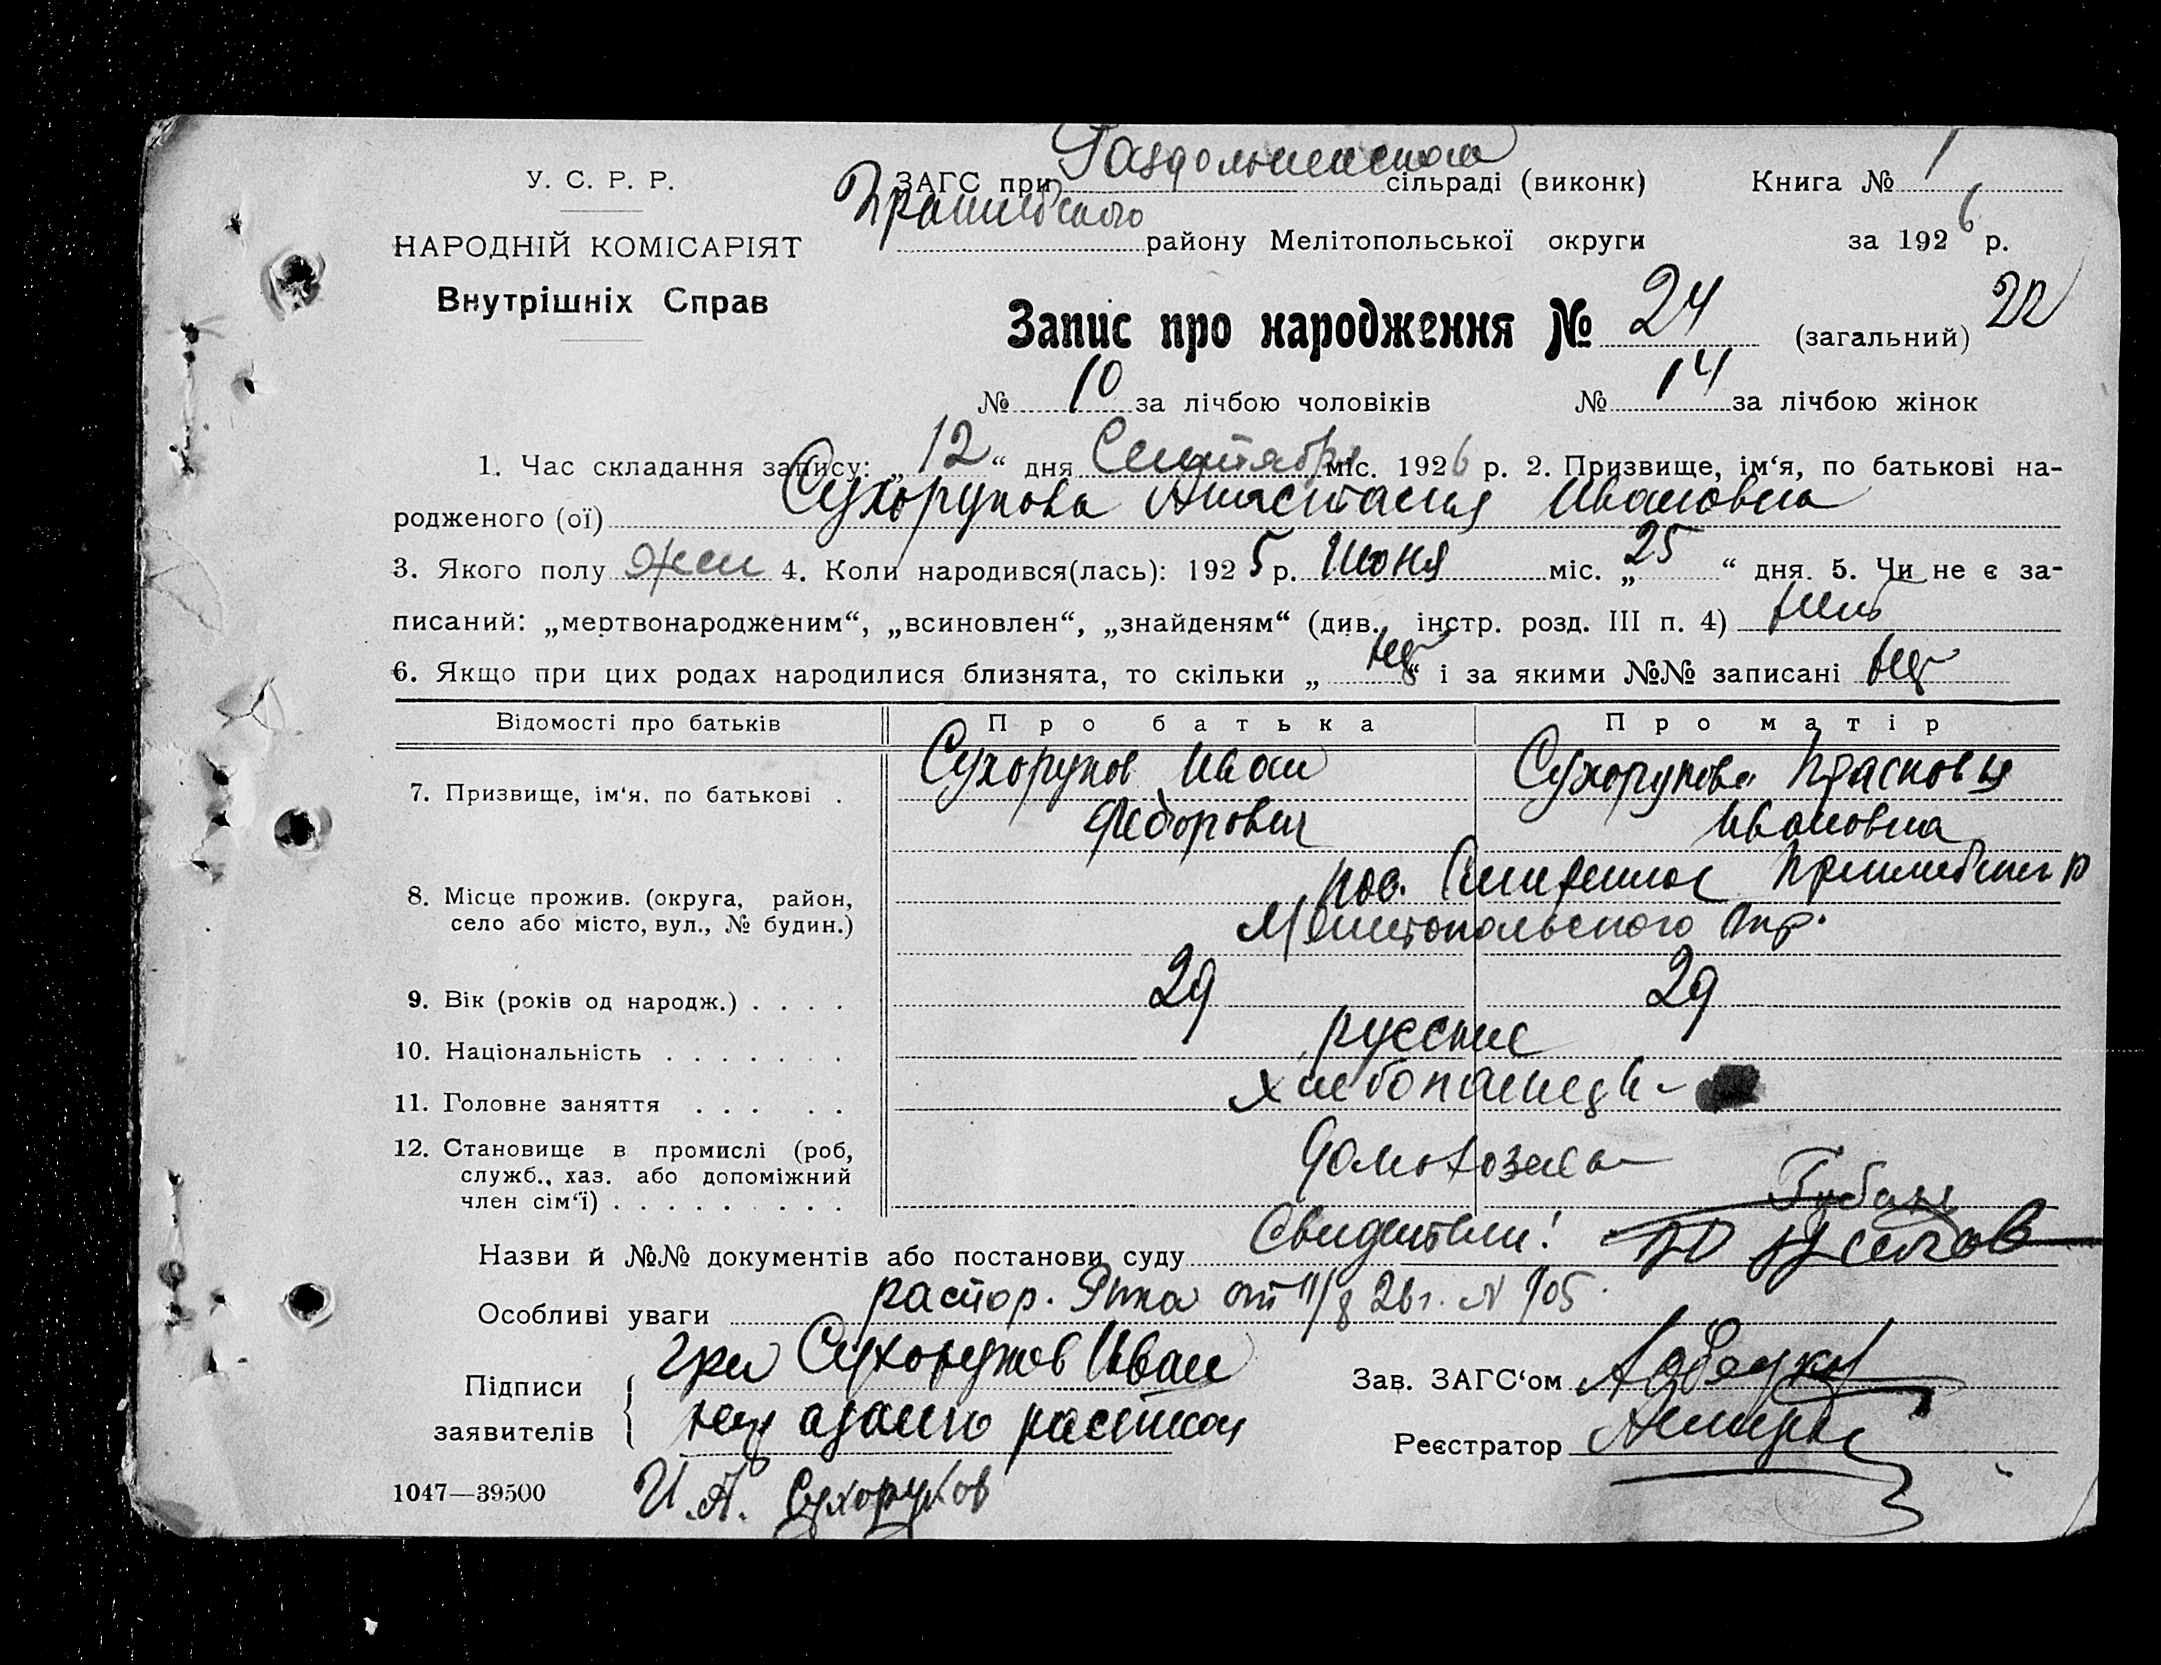 У. С. Р. Р.
НАРОДНІЙ КОМІСАРІЯТ
Внутрішніх Справ
ЗАГС при сільраді (виконк) Книга № 1
району Мелітопольської округи за 1926 р.
Запис про народження № 24 (загальний) 22
№ 10 за лічбою чоловіків № 14 за лічбою жінок
1. Час складання запису: „12“ дня Сентября міс. 1926 р. 2. Призвище, ім‘я, по батькові на-
родженого (ої) Сухорукова Анастасия Ивановна
3. Якого полу жен 4. Коли народився(лась): 1925 р. Июня міс. „25“ дня. 5. Чи не є за-
писаний: „мертвонародженим“, „всиновлен“, „знайденям“ (див. інстр. розд. III п. 4) нет
6. Якщо при цих родах народилися близнята, то скільки „нет“ і за якими №№ записані нет
Відомості про батьків Про батька Про матір
7. Призвище, ім‘я, по батькові . Сухоруков Иван Сухорукова Прасковья
Федорович Ивановна
8. Місце прожив. (округа, район,
село або місто, вул., № будин.)
Мелитопольского Окр.
9. Вік (років од народж.) . . . . 29 29
10. Національність . . . . . . . русские
11. Головне заняття . . . . . хлебопашец
12. Становище в промислі (роб,
служб., хаз. або допоміжний
член сім‘ї) . . . . . . . . .
Назви й №№ документів або постанови суду Свидетели!
Особливі уваги распор. от 11/8 26 г. № 105
Підписи Сухоруков Иван Зав. ЗАГС‘ом
заявителів Реєстратор
1047—39500 Сухоруков